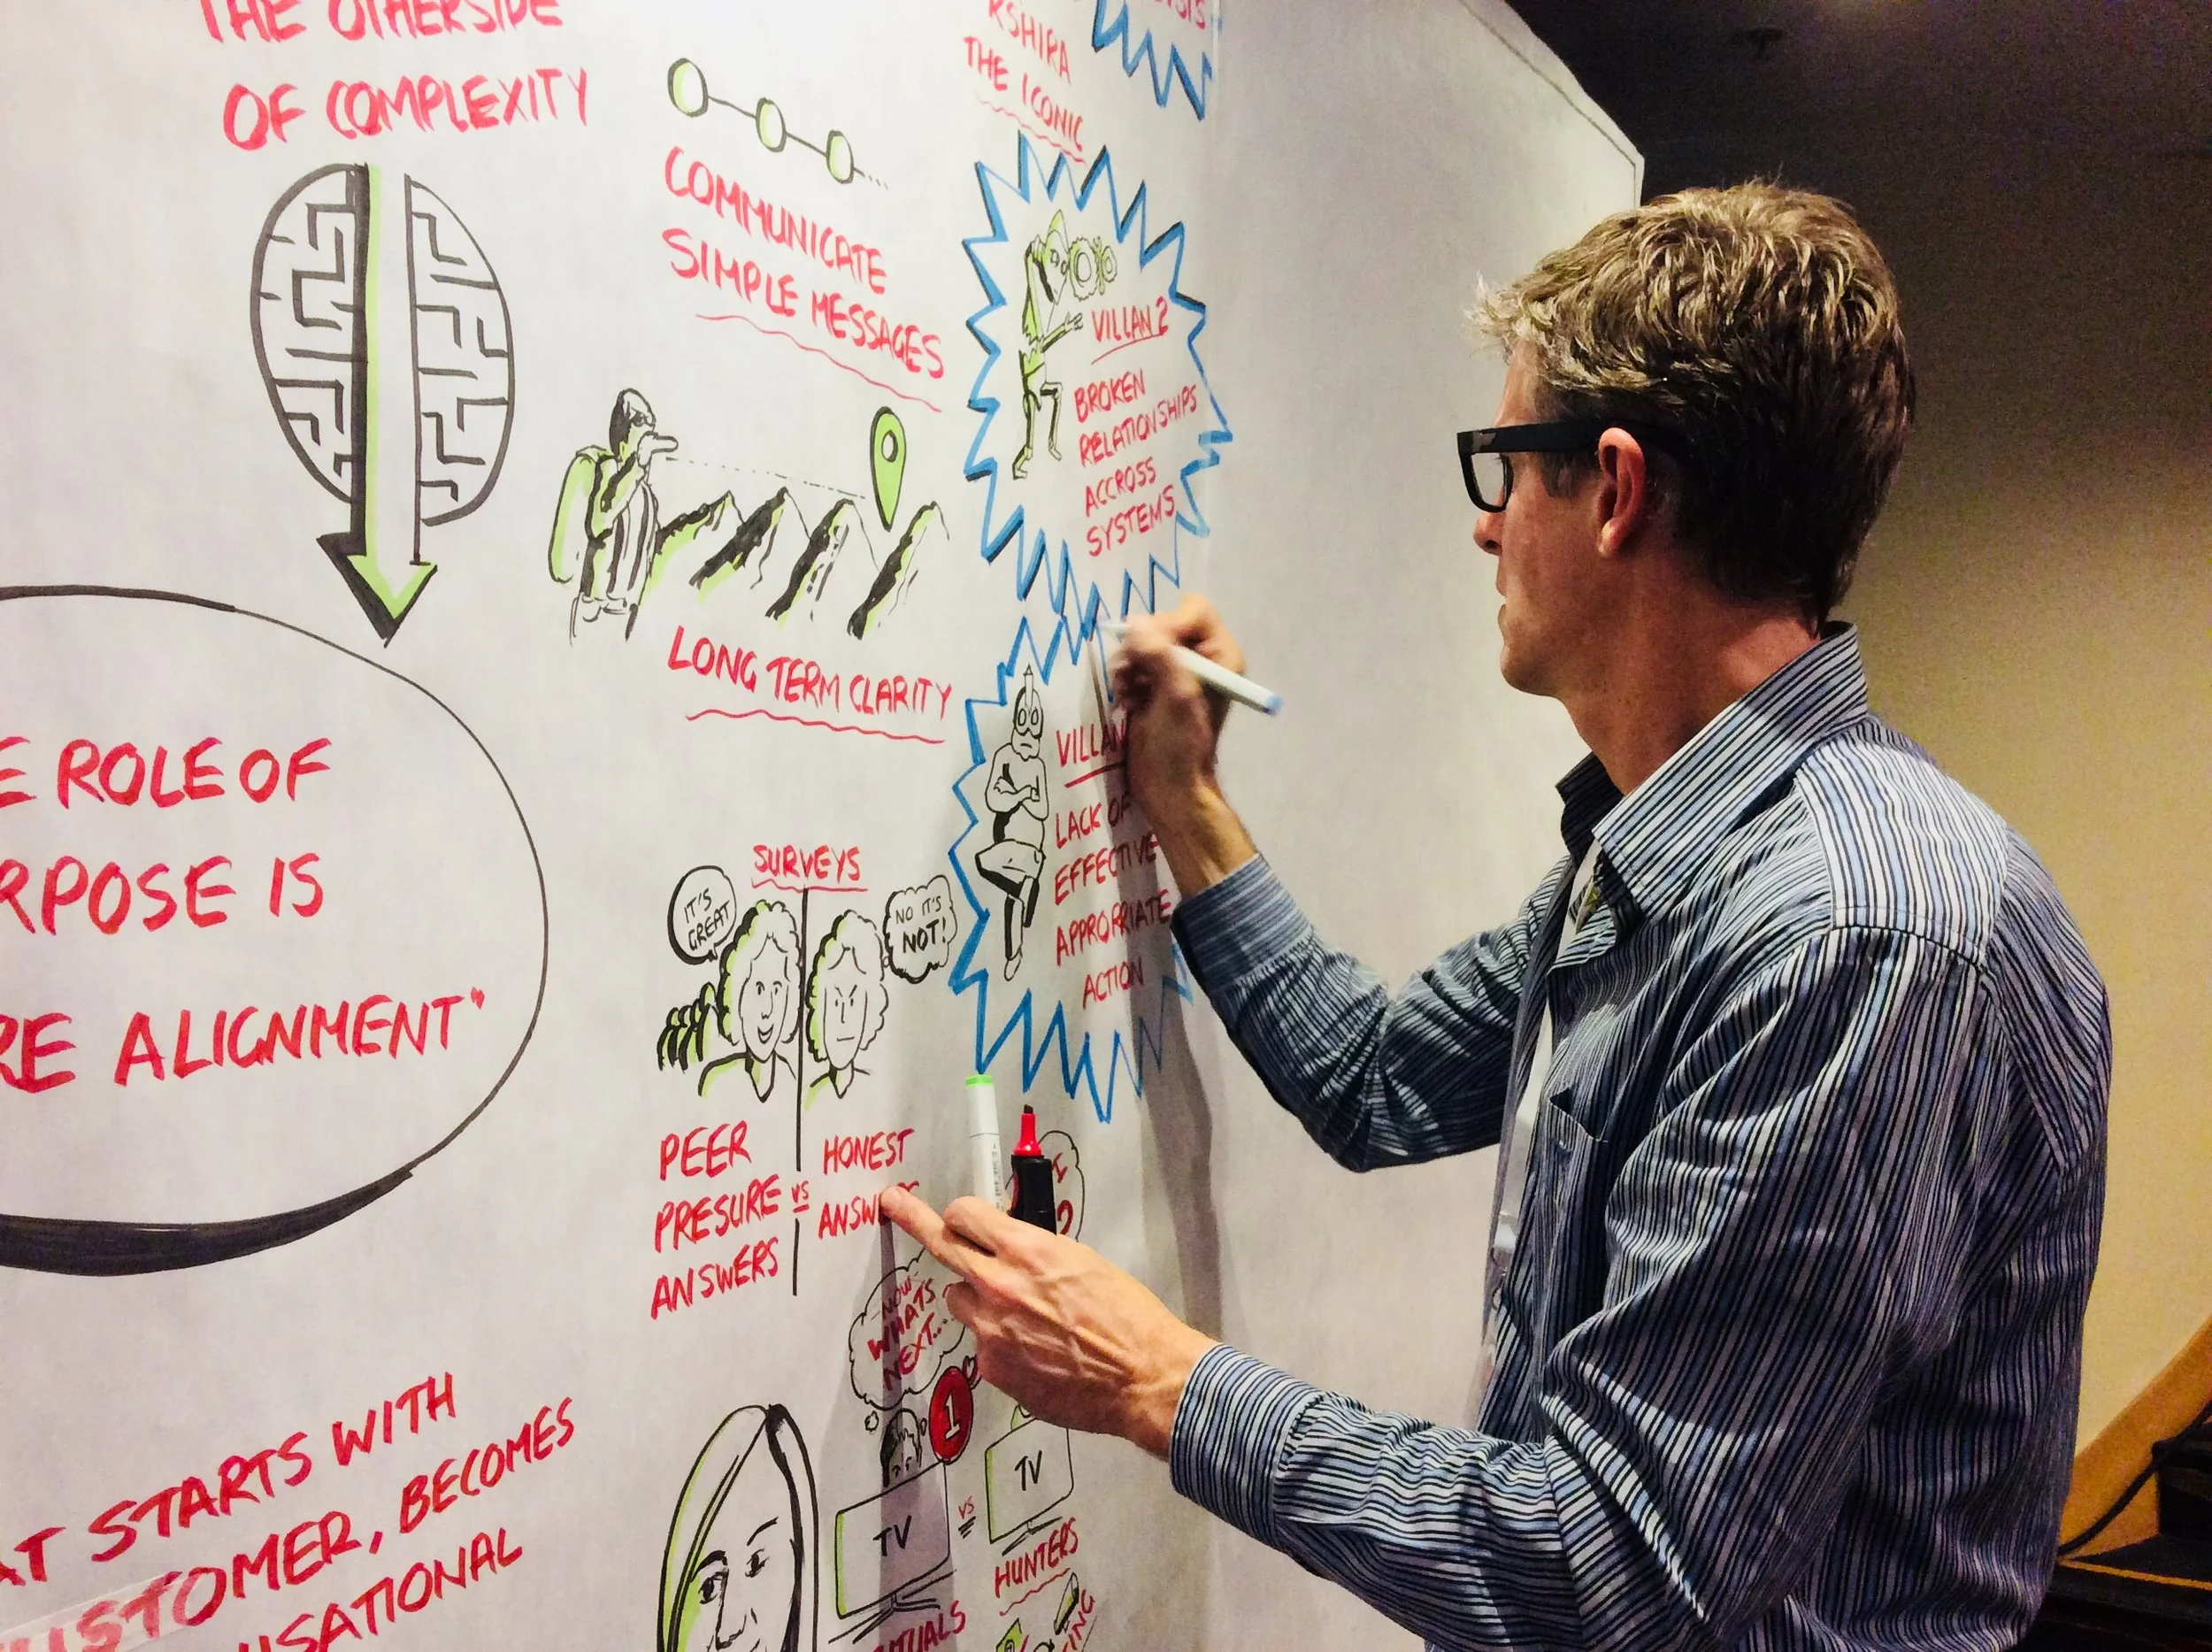 THE OTHERSIDE
OF COMPLEXITY
ROLE OF
IS
ALIGNMENT"
STARTS WITH
BECOMES
COMMUNICATE
SIMPLE MESSAGES
LONG TERM CLARITY
SURVEYS
IT'S
GREAT
NO IT'S
NOT!
PEER
PRESURE
ANSWERS
VS
HONEST
NOW
WHATS
NEXT...
1
TV
VS
TV
HUNTERS
THE ICONIC
VILLAN 2
BROKEN
RELATIONSHIPS
ACCROSS
SYSTEMS
VILLAN
LACK OF
EFFECTIVE
APPRORRIATE
ACTION